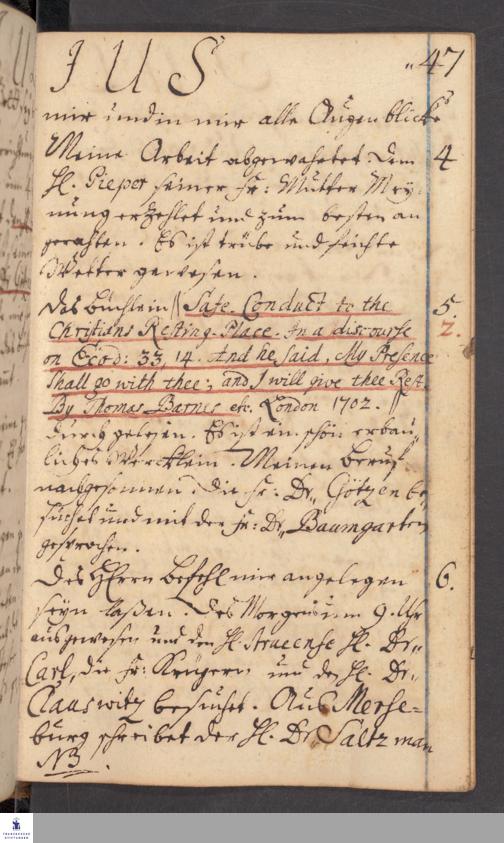 J U S " 47
mir und in mir alle Augenblicke
Meine Arbeit abgewartet dem 4
H. Pieper seiner Fr: Mutter Mey-
nung erzehlet und zum besten an
gerathen. Es ist trübe und feichte
Wetter gewesen.
das Büchlein // Safe Conduct to the 5.
Christians Resting-Place. In a discourse 2.
on Exod: 33, 14. And he said, My Presence
shall go with thee, and I will give thee Rest.
By Thomas Barnes etc. London 1702. //
durchgelesen. Es ist ein schön erbau-
liches Wercklein. Meinen Beruf
nachgesonnen. Die Fr: Dr„ Götzen be-
suchet und mit der Fr: Dr„ Baumgarten
gesprochen.
Des HErrn Befehl mir angelegen 6.
seyn laßen. Des Morgens um 9. Uhr
ausgewesen und den H. Struensee H. Dr„
Carl, die Fr: Krügern und den H. Dr„
Clauswitz besuchet. Aus Merse-
burg schreibet der H. Dr Saltzman
NB.
FRANCKESCHE
STIFTUNGEN